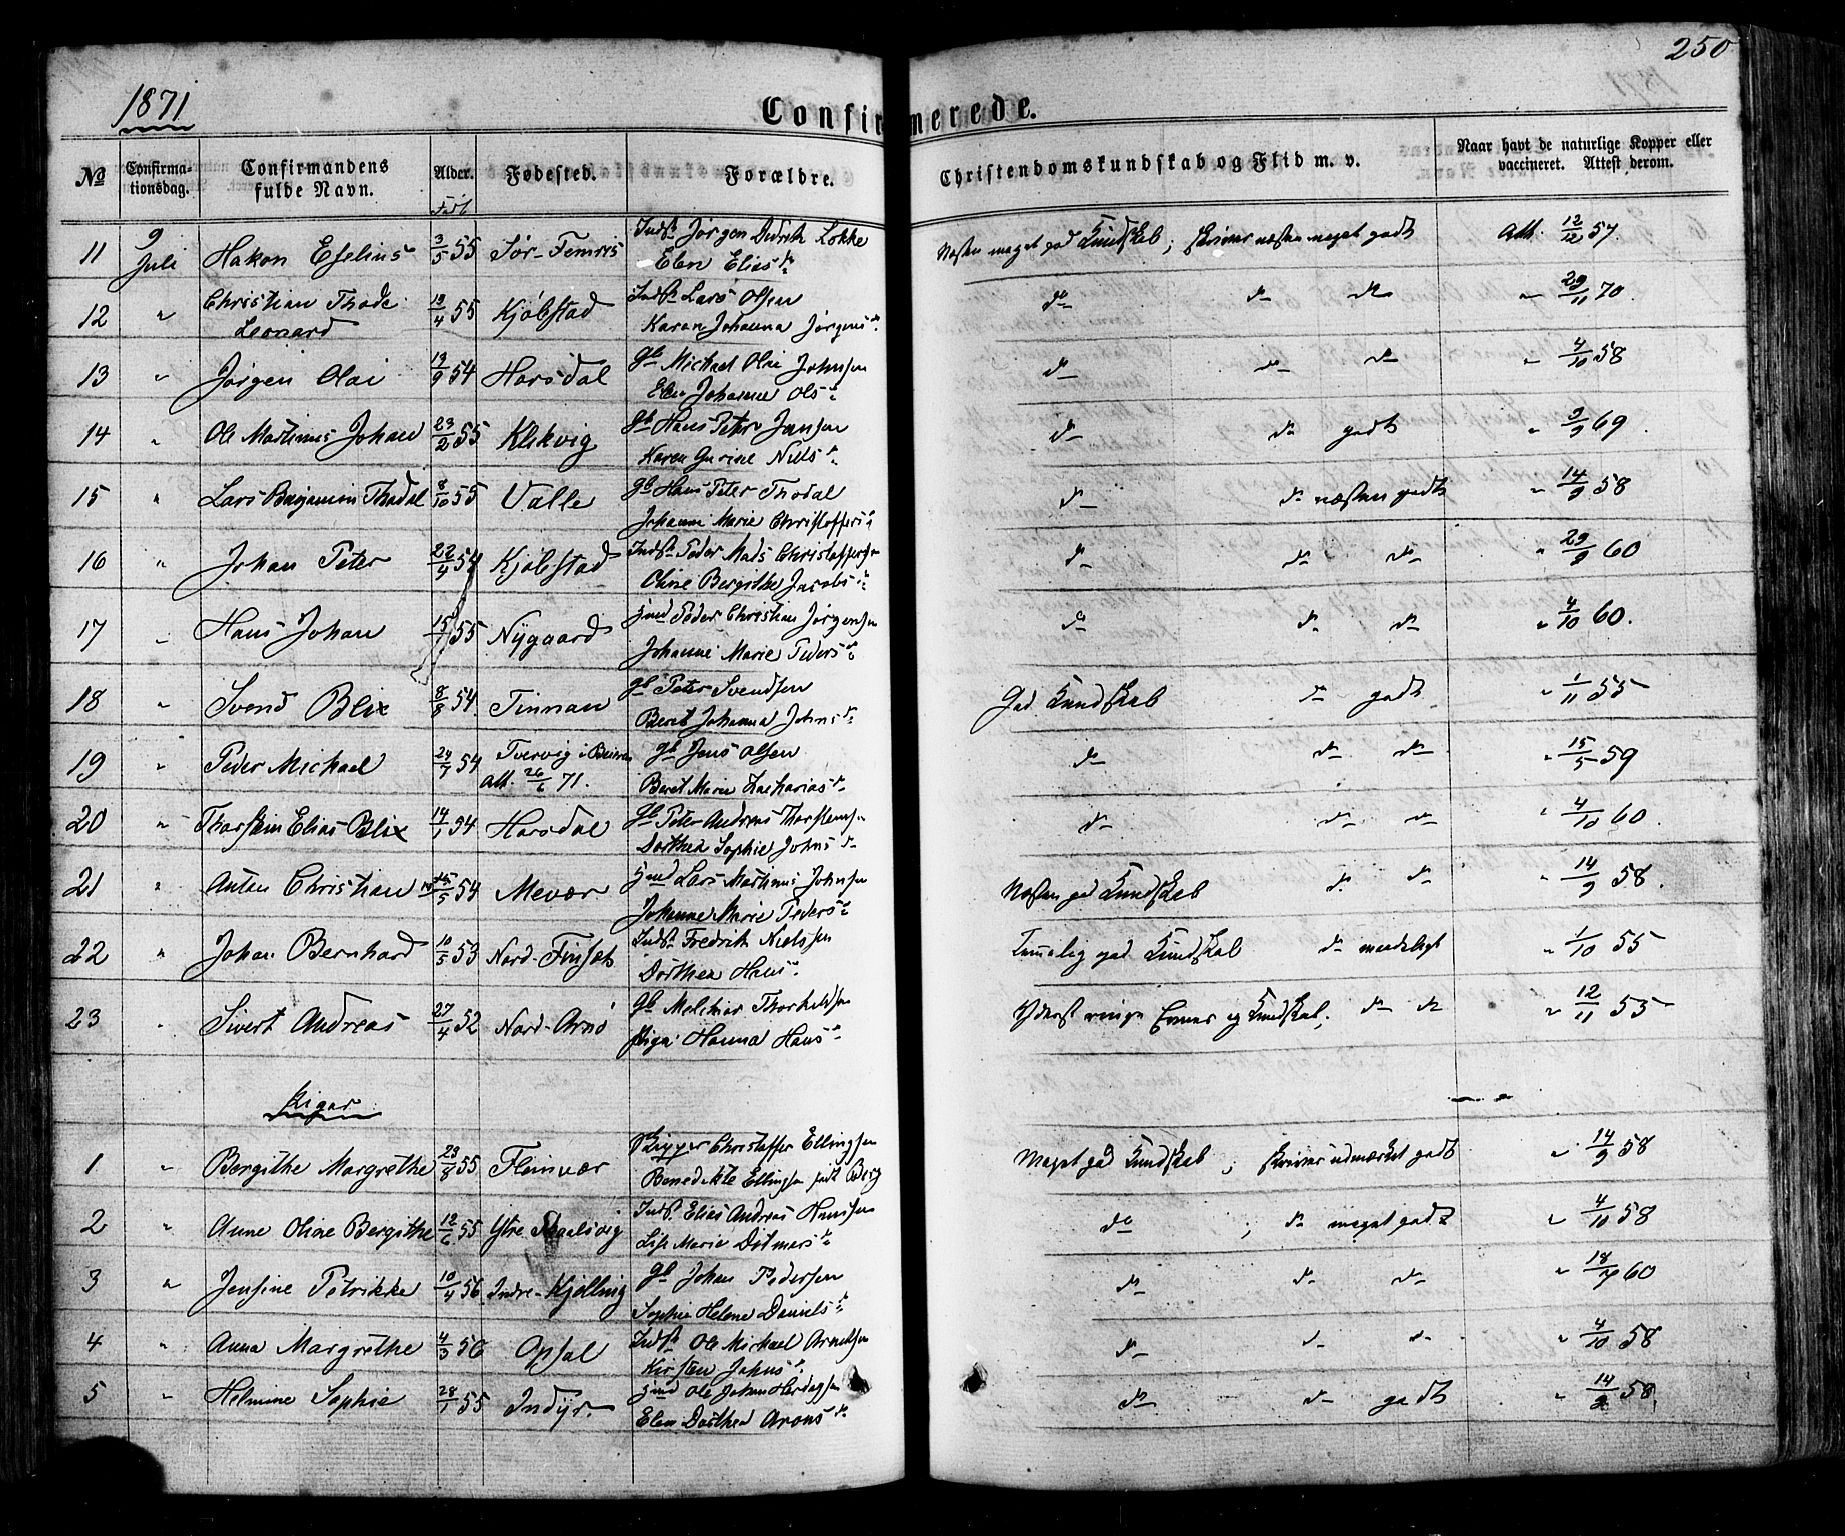 250
1871
Confirmerede.
No Confirmationsdag. Confirmandens fulde Navn. Alder. Fødested. Forældre. Christendomskundskab og Flid m. v. Naar havt de naturlige Kopper eller vaccineret. Attest derom.
Født
11 9 Juli Hakon Eselius 3/5 55 Sør-Femris Inds. Jørgen Didrik Løkke
Elen Elias d.
Næsten meget god Kundskab; skriver næsten meget godt Att. 12/12 57.
12 " Christian Thode Leonard 13/4 55 Kjøbstad Inds. Lars Olsen
Karen Johanna Jørgens d.
do do do " 29/11 70.
13 " Jørgen Olai 13/9 54 Horsdal gb Michael Olai Johnsen
Elen Johanne Ols d.
do do do " 4/10 58
14 " Ole Martinus Johan 23/2 55 Klikvig gb Hans Peter Jensen
Karen Gurine Niels d.
do do godt " 9/9 69.
15 " Lars Benjamin Thodal 8/10 55 Valle gb Hans Peter Thodal
Johanne Marie Christoffers d.
do do næsten godt " 14/9 58
16 " Johan Peter 22/9 54 Kjøbstad Inds. Peder Mads Christoffersen
Oline Bergithe Jacobs d.
do do do " 29/9 60
17 " Hans Johan 15/1 55 Nygaard Jmd Peder Christian Jørgensen
Johanne Marie Peders d.
do do do " 4/10 60.
18 " Svend Blix 8/8 54. Finnan gb Peter Svendsen
Beret Johanna Johns d.
God Kundskab do godt " 1/11 55
19 " Peder Michael 24/7 54 Tvervig i Beieren gb Jens Olsen
Att. 26/6 71. Beret Marie Zacharias d.
do do do " 15/5 59
20 " Thorstein Elias Blix 14/1 54 Horsdal gb Peter Andreas Thorstensen
Dorthea Sophie Johns d.
do do do " 4/10 60.
21 " Anton Christian 15/5 54 Mevær Jmd Lars Martinus Johnsen
Johanne Marie Peders d.
Næsten god Kundskab do do " 14/9 58.
22 " Johan Bernhard 10/5 53 Nord-Finset Inds. Fredrik Nielsen
Dorthea Hans d.
Temmelig god Kundskab do maadeligt " 1/10 55
23 " Sivert Andreas 27/4 52 Nord-Arnø gb Melchior Thorkildsen
Pige Hanna Hans d.
Yderst ringe Evner og Kundskab; do do " 12/11 55
Piger
1 " Bergithe Margrethe 23/8 55 Fleinvær Skipper Christoffer Ellingsen
Benedikte Ellingsen født Berg
Meget god Kundskab; skriver udmærket godt " 14/9 58
2 " Anne Oline Bergithe 12/6 55 Ytre Skaalsvig Inds. Elias Andreas Knutsen
Lise Marie Ditmars d.
do; do meget godt " 4/10 58
3 " Jensine Petrikke 10/4 56 Indre-Kjelling gb Johan Pedersen
Sophie Helene Daniels d.
do do do " 18/7 60
4 " Anna Margrethe 4/3 56 Opsal Inds. Ole Michael Arnoldsen
Kirsten Johns d.
do do do " 4/10 58
5 " Helmine Sophie 28/1 55 Indyr. Jmd Ole Johan Herlogsen
Elen Dorthea Arons d.
do do godt " 14/9 58.